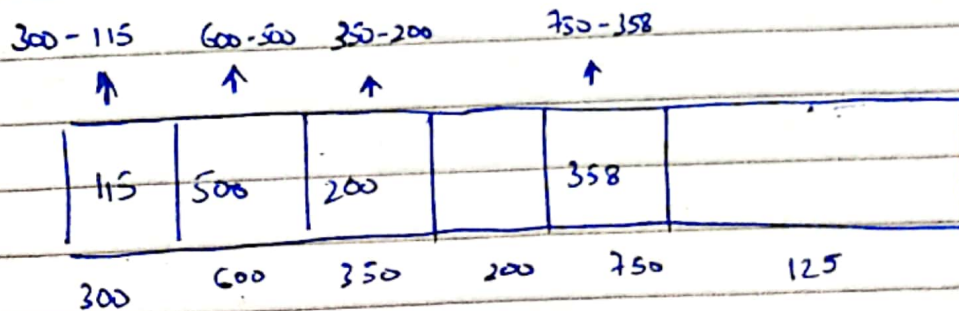 300-115 600-500 350-200 750-358
↑ ↑ ↑ ↑
115 500 200 358
300 600 350 200 750 125